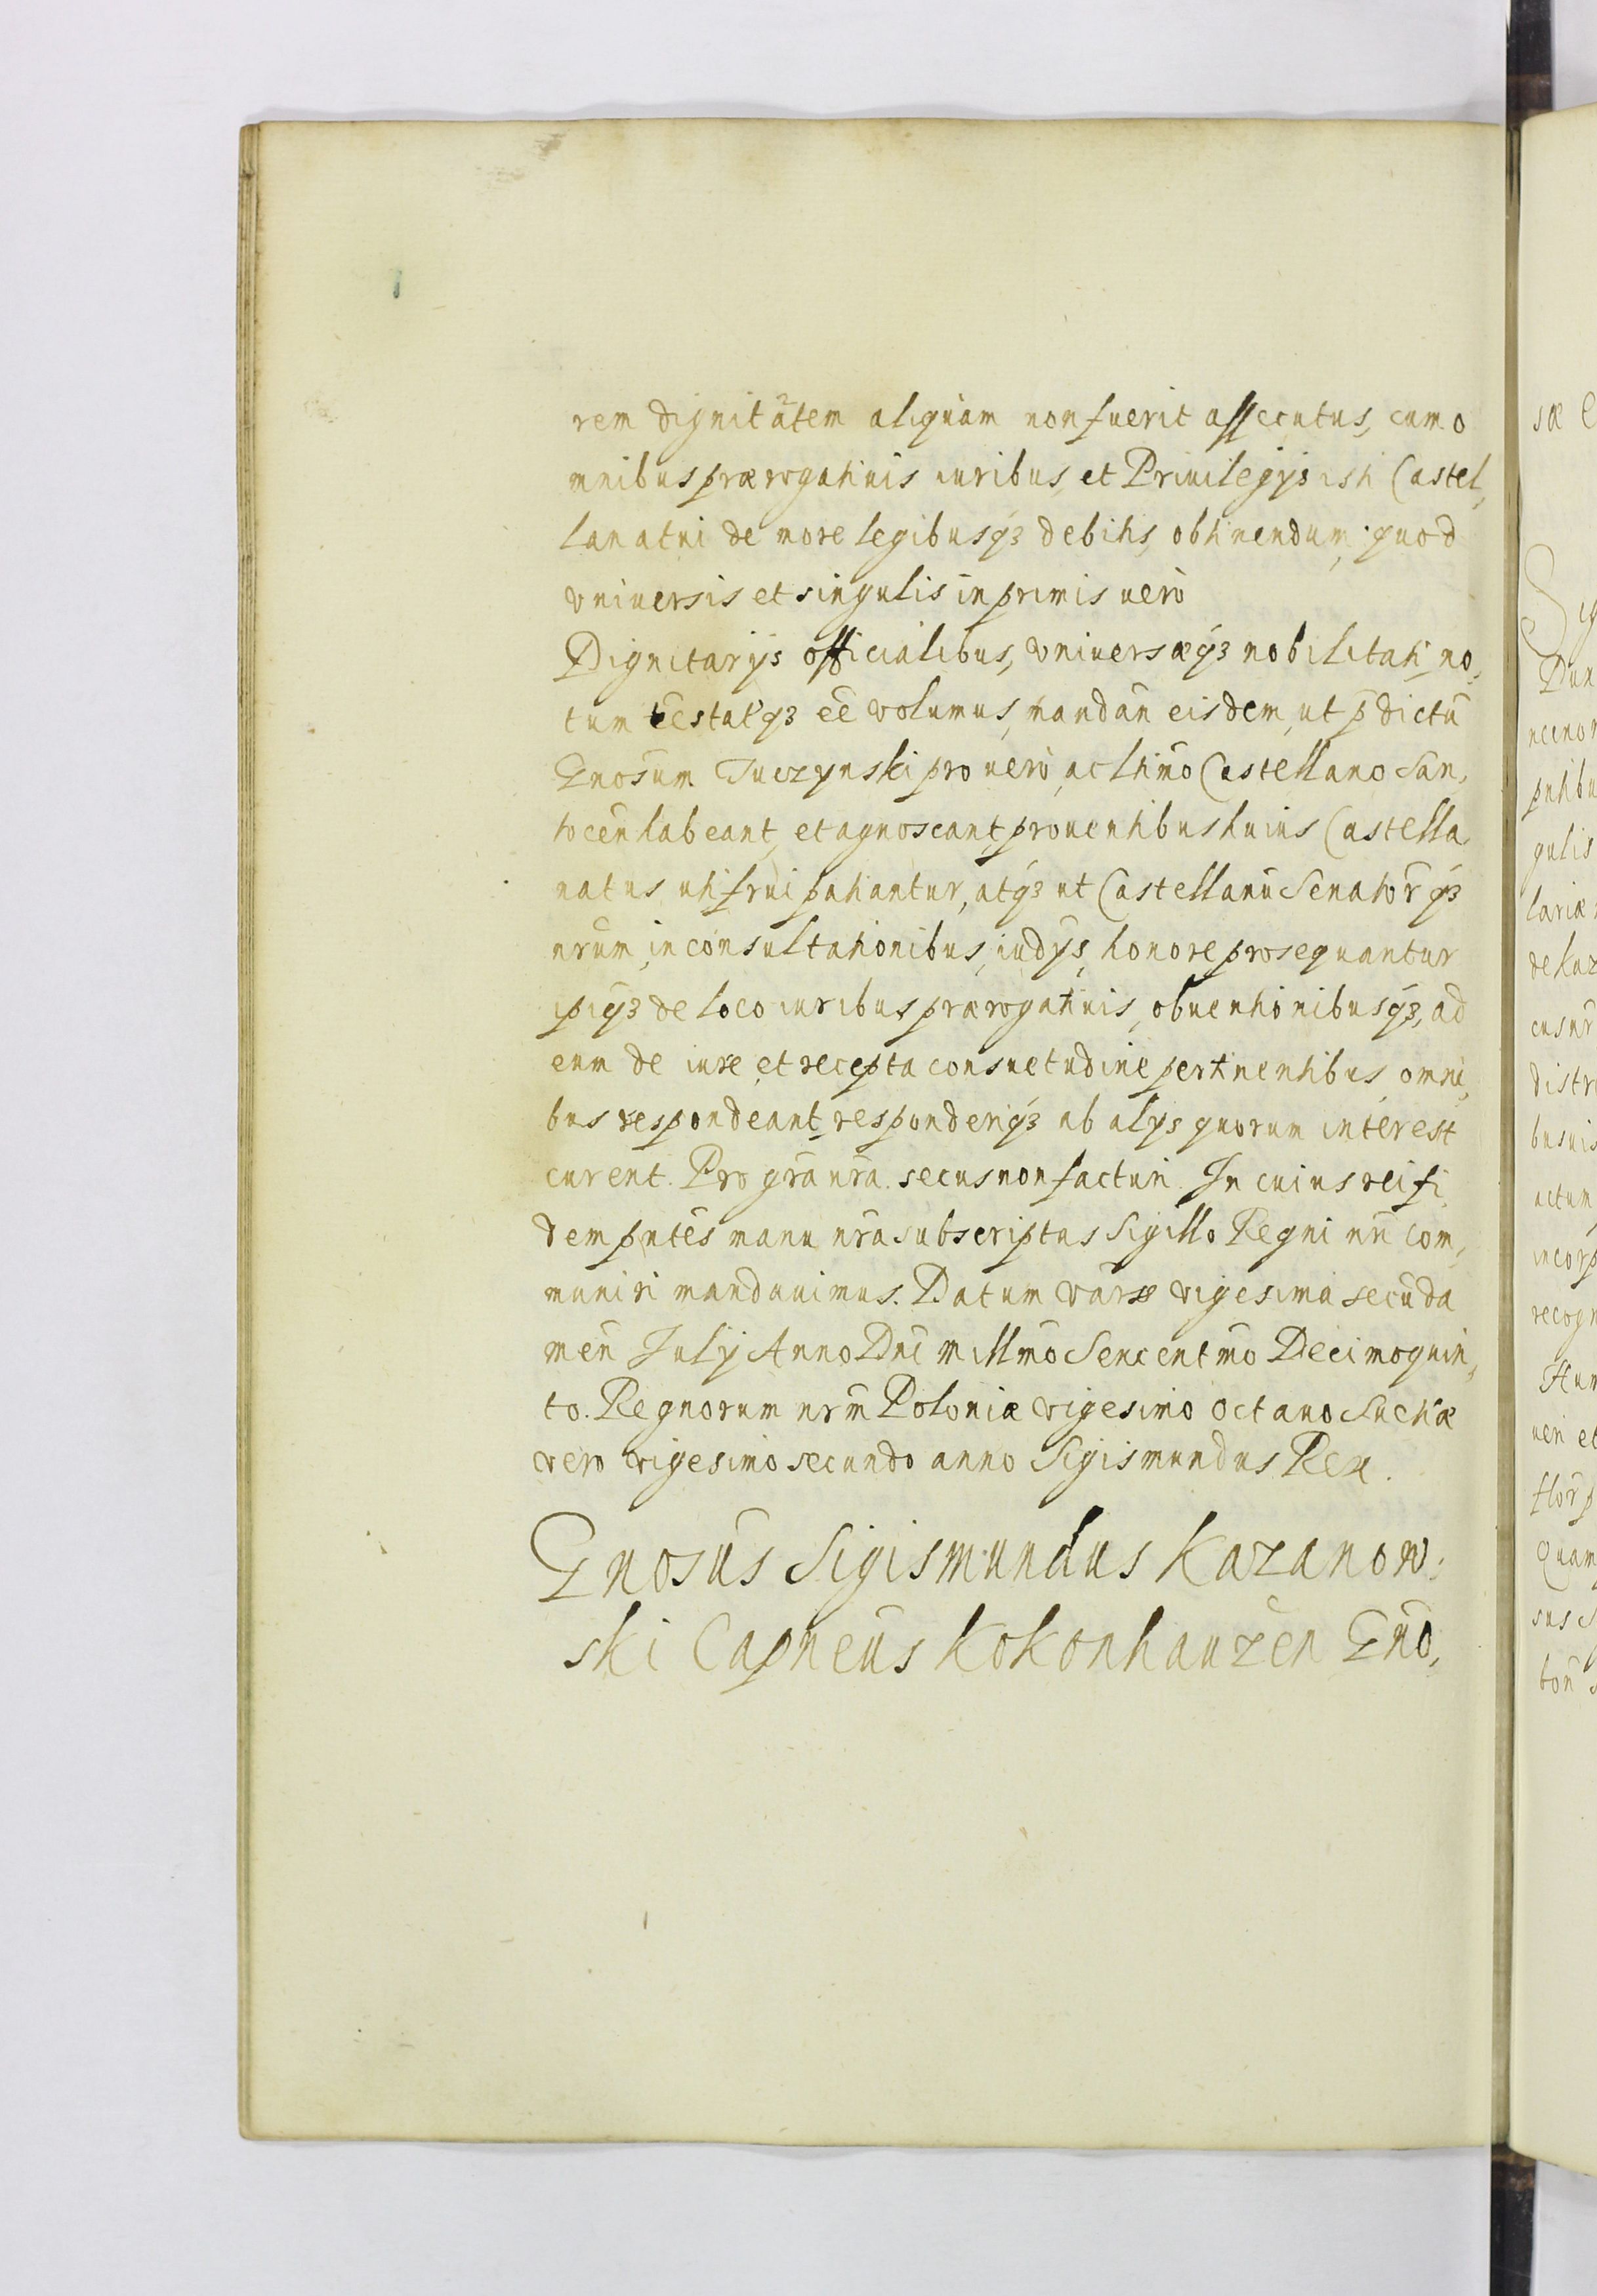 rem dignitatem aliquam non fuerit assecutus, cum o
mnibus prærogatiuis iuribus, et Priuilegÿs isti Castel,
lanatui de more legibusqȝ debitis, obtinendum. quod
vniuersis et singulis in primis uerò
Dignitarÿs officialibus, vniuersæqȝ nobilitati no,
tum testatqȝ eē volumus, mandan̄ eisdem, ut p̄dictū
Gnosum Tuczynski pro uerò, ac ltimo Castellano San,
tocen̄ habeant, et agnoscant, prouentibus huius Castella
natus uti frui patiantur, atqȝ ut Castellanū Senator̄qȝ
nrum, in consultationibus, iudÿs, honore prosequantur
ipiqȝ de loco iuribus prærogatiuis, obuentionibusqȝ, ad
eum de iure et recepta consuetudine pertinentibus omni,
bus respondeant, responderiqȝ ab alÿs quorum interest
curent. Pro gra̅ nra̅. secus non facturi. In cuius rei fi
dem pntēs manu nra̅ subscriptas Sigillo Regni nri̅ com,
muniri mandauimus. Datum Varsæ vigesima secūda
men̄ Julÿ Anno Dni̅ millmō Sexcentmo Decimoquin,
to. Regnorum nrm̄ Poloniæ vigesimo octauo Sueciæ
vero vigesimo secundo anno Sigismundus Rex.
Gnosūs Sigismundus Kazanow,
ski Capneūs Kokonhauzen Gnō,